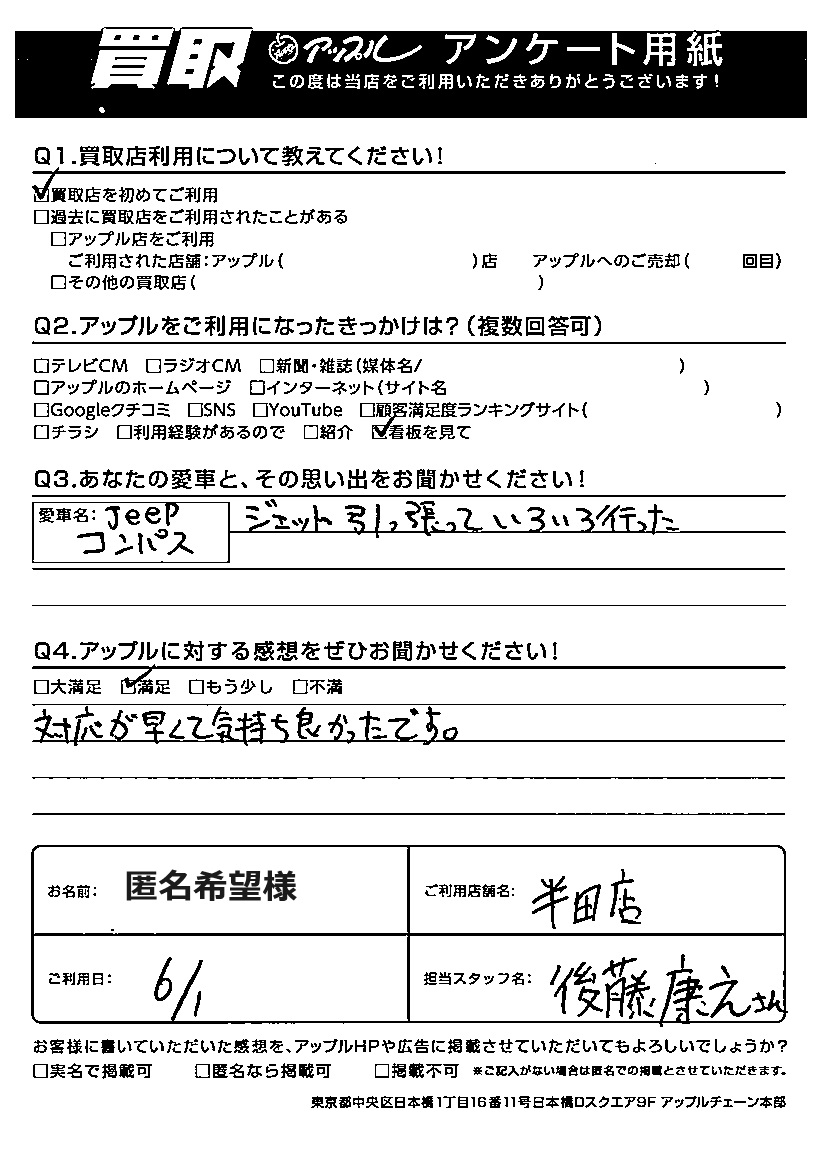 買取 アップル アンケート用紙
この度は当店をご利用いただきありがとうございます!
Q1.買取店利用について教えてください!
☑買取店を初めてご利用
□過去に買取店をご利用されたことがある
□アップル店をご利用
ご利用された店舗:アップル( )店 アップルへのご売却( 回目)
□その他の買取店( )
Q2.アップルをご利用になったきっかけは?(複数回答可)
□テレビCM □ラジオCM □新聞・雑誌(媒体名/ )
□アップルのホームページ □インターネット(サイト名 )
□Googleクチコミ □SNS □YouTube □顧客満足度ランキングサイト( )
□チラシ □利用経験があるので □紹介 ☑看板を見て
Q3.あなたの愛車と、その思い出をお聞かせください!
愛車名: Jeep
コンパス
ジェット引っ張っていろいろ行った
Q4.アップルに対する感想をぜひお聞かせください!
□大満足 ☑満足 □もう少し □不満
対応が早くて気持ち良かったです。
お名前: 匿名希望様
ご利用店舗名: 半田店
ご利用日: 6/1
担当スタッフ名: 後藤康えさん
お客様に書いていただいた感想を、アップルHPや広告に掲載させていただいてもよろしいでしょうか?
□実名で掲載可 □匿名なら掲載可 □掲載不可 ※ご記入がない場合は匿名での掲載とさせていただきます。
東京都中央区日本橋1丁目16番11号日本橋Dスクエア9F アップルチェーン本部